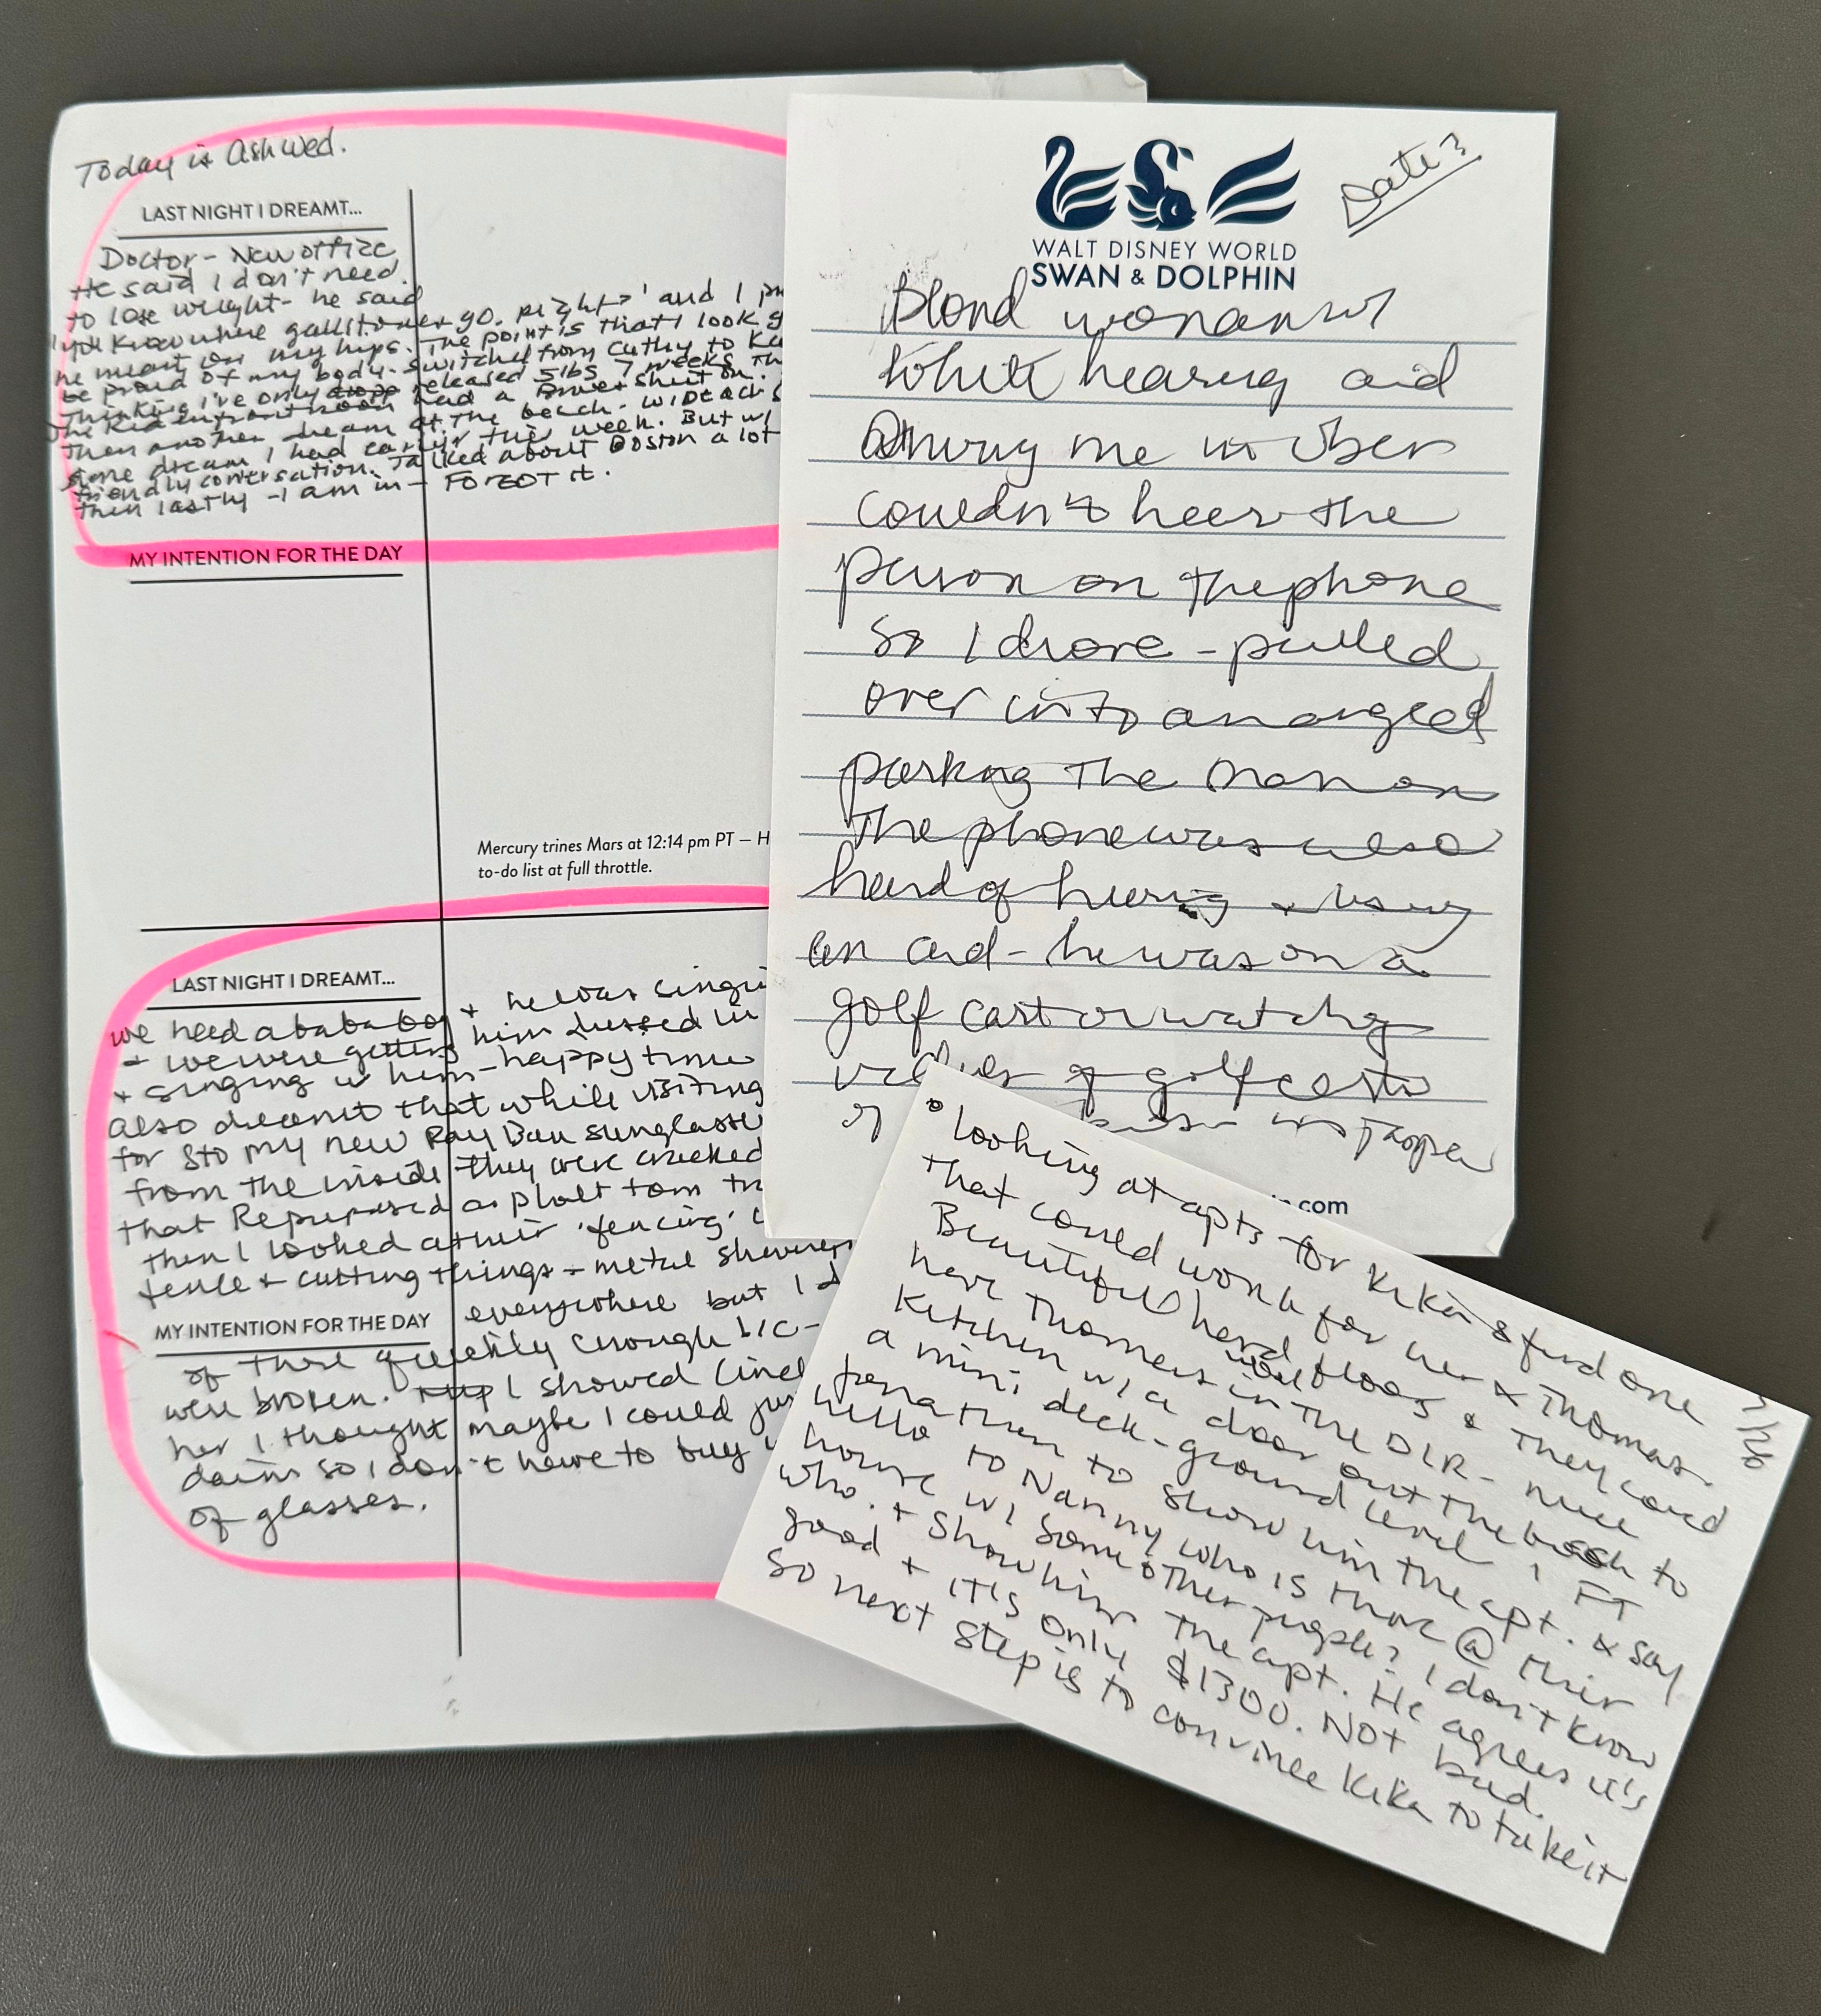 Today is Ash Wed.
LAST NIGHT I DREAMT...
Doctor - New office
He said I don't need
to lose weight - he said
know where gallstones go. right?' and I
he meant on my hips. The point is that I look
be proud of my body. switched from Cathy to
Thinking I've only released 5lbs 7 weeks
The Kid in front had a shirt on.
Then another dream at the beach.
same dream I had earlier this week. But w/
friendly conversation. Talked about Boston a lot
then lastly - I am in - FORGOT it.
MY INTENTION FOR THE DAY
Mercury trines Mars at 12:14 pm PT – H
to-do list at full throttle.
LAST NIGHT I DREAMT...
we need a baba boy + he was
+ we were getting him dressed in
+ singing w him - happy time
also dreamt that while visiting
for STO my new Ray Ban sunglasses
from the inside they were cracked
that Repurposed a
then I looked at their 'fencing'
fence + cutting things - metal
MY INTENTION FOR THE DAY
everywhere but I d
of there quickly enough b/c -
were broken. I showed
her I thought maybe I could
claim so I don't have to buy
of glasses.
WALT DISNEY WORLD
SWAN & DOLPHIN
Date?
Blond woman w/
white hearing aid
driving me in Uber
couldn't hear the
person on the phone
so I drove - pulled
over into a
parking The man on
the phone was also
hard of hearing + using
an aid - he was on a
golf cart or watching
of golf carts
or
.com
7/26
• looking at apts for Kika & find one
that could work for her & Thomas.
Beautiful hard wood floors & They could
have Thomas in the DLR - nice
Kitchen w/ a door out the back to
a mini deck - ground level. I FT
Jonathan to show him the apt. & say
hello to Nanny who is there @ their
house w/ some other people? I don't know
who. + Show him the apt. He agrees it's
good + it is only $1300. Not bad.
So next step is to convince Kika to take it